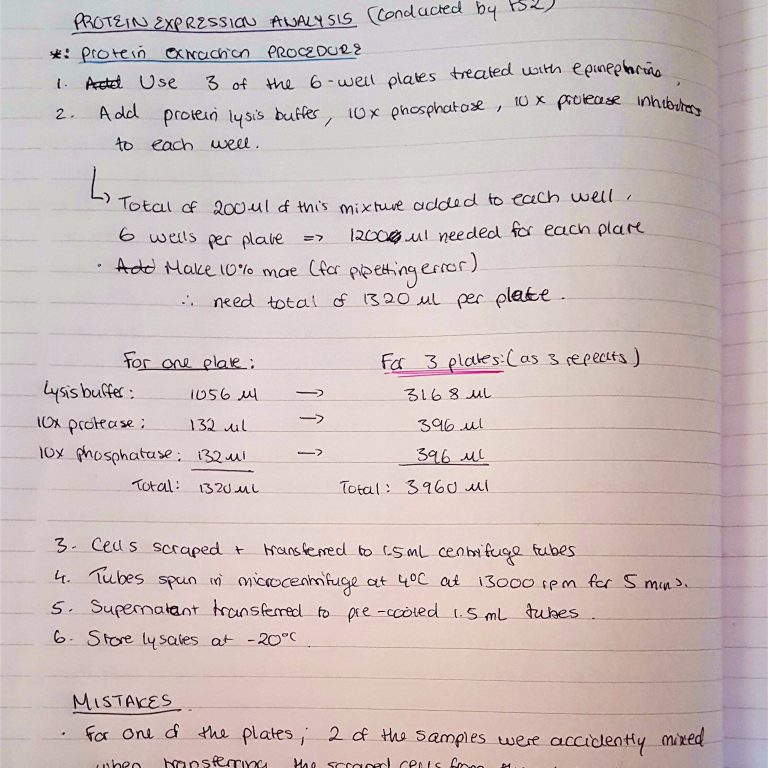 PROTEIN EXPRESSION ANALYSIS (conducted by PS2)
*: protein extraction PROCEDURE
1. Add Use 3 of the 6-well plates treated with epinephrine,
2. Add protein lysis buffer, 10x phosphatase, 10x protease inhibitors
to each well.
↳ Total of 200ul of this mixture added to each well.
6 wells per plate => 1200 ul needed for each plate
• Add Make 10% more (for pipetting error)
∴ need total of 1320 ul per plate.
For one plate: For 3 plates: (as 3 repeats)
Lysis buffer: 1056 ul → 3168 ul
10x protease: 132 ul → 396 ul
10x phosphatase: 132 ul → 396 ul
Total: 1320 ul Total: 3960 ul
3. Cells scraped + transferred to 1.5mL centrifuge tubes
4. Tubes spun in microcentrifuge at 4°C at 13000 rpm for 5 mins.
5. Supernatant transferred to pre-cooled 1.5 mL tubes.
6. Store lysates at -20°C.
MISTAKES
• For one of the plates; 2 of the samples were accidently mixed
when transferring the scraped cells from